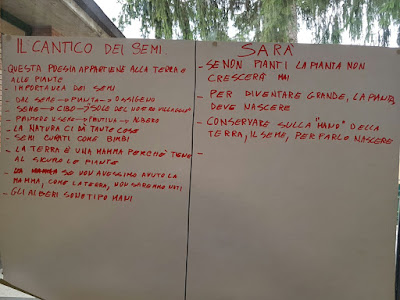 IL CANTICO DEI SEMI
QUESTA POESIA APPARTIENE ALLA TERRA E
ALLE PIANTE
- IMPORTANZA DEI SEMI
- DAL SEME → PIANTA → OSSIGENO
- SEME → CIBO → "SOLE DEL NOSTRO VILLAGGIO"
- PRIMO IL SEME → PIANTINA → ALBERO
- LA NATURA CI DÀ TANTE COSE
- SEMI CURATI COME BIMBI
- LA TERRA È UNA MAMMA PERCHÈ TIENE
AL SICURO LE PIANTE
- SE NON AVESSIMO AVUTO LA
MAMMA, COME LA TERRA, NON SAREMMO NATI
- GLI ALBERI SONO TIPO MANI
SARÀ
- SE NON PIANTI LA PIANTA NON
CRESCERÀ MAI
- PER DIVENTARE GRANDE, LA PIANTA
DEVE NASCERE
- CONSERVATE SULLA "MANO" DELLA
TERRA, IL SEME, PER FARLO NASCERE
-